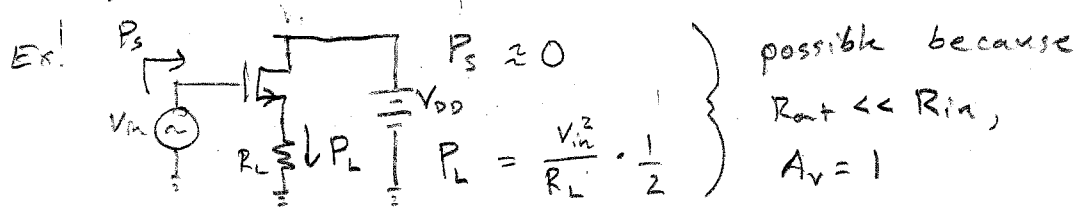 Ex!
P_s
V_in
R_L
↓ P_L
V_DD
P_s ≈ 0
P_L = V_in² / R_L · 1/2
possible because
R_out << R_in,
A_v = 1